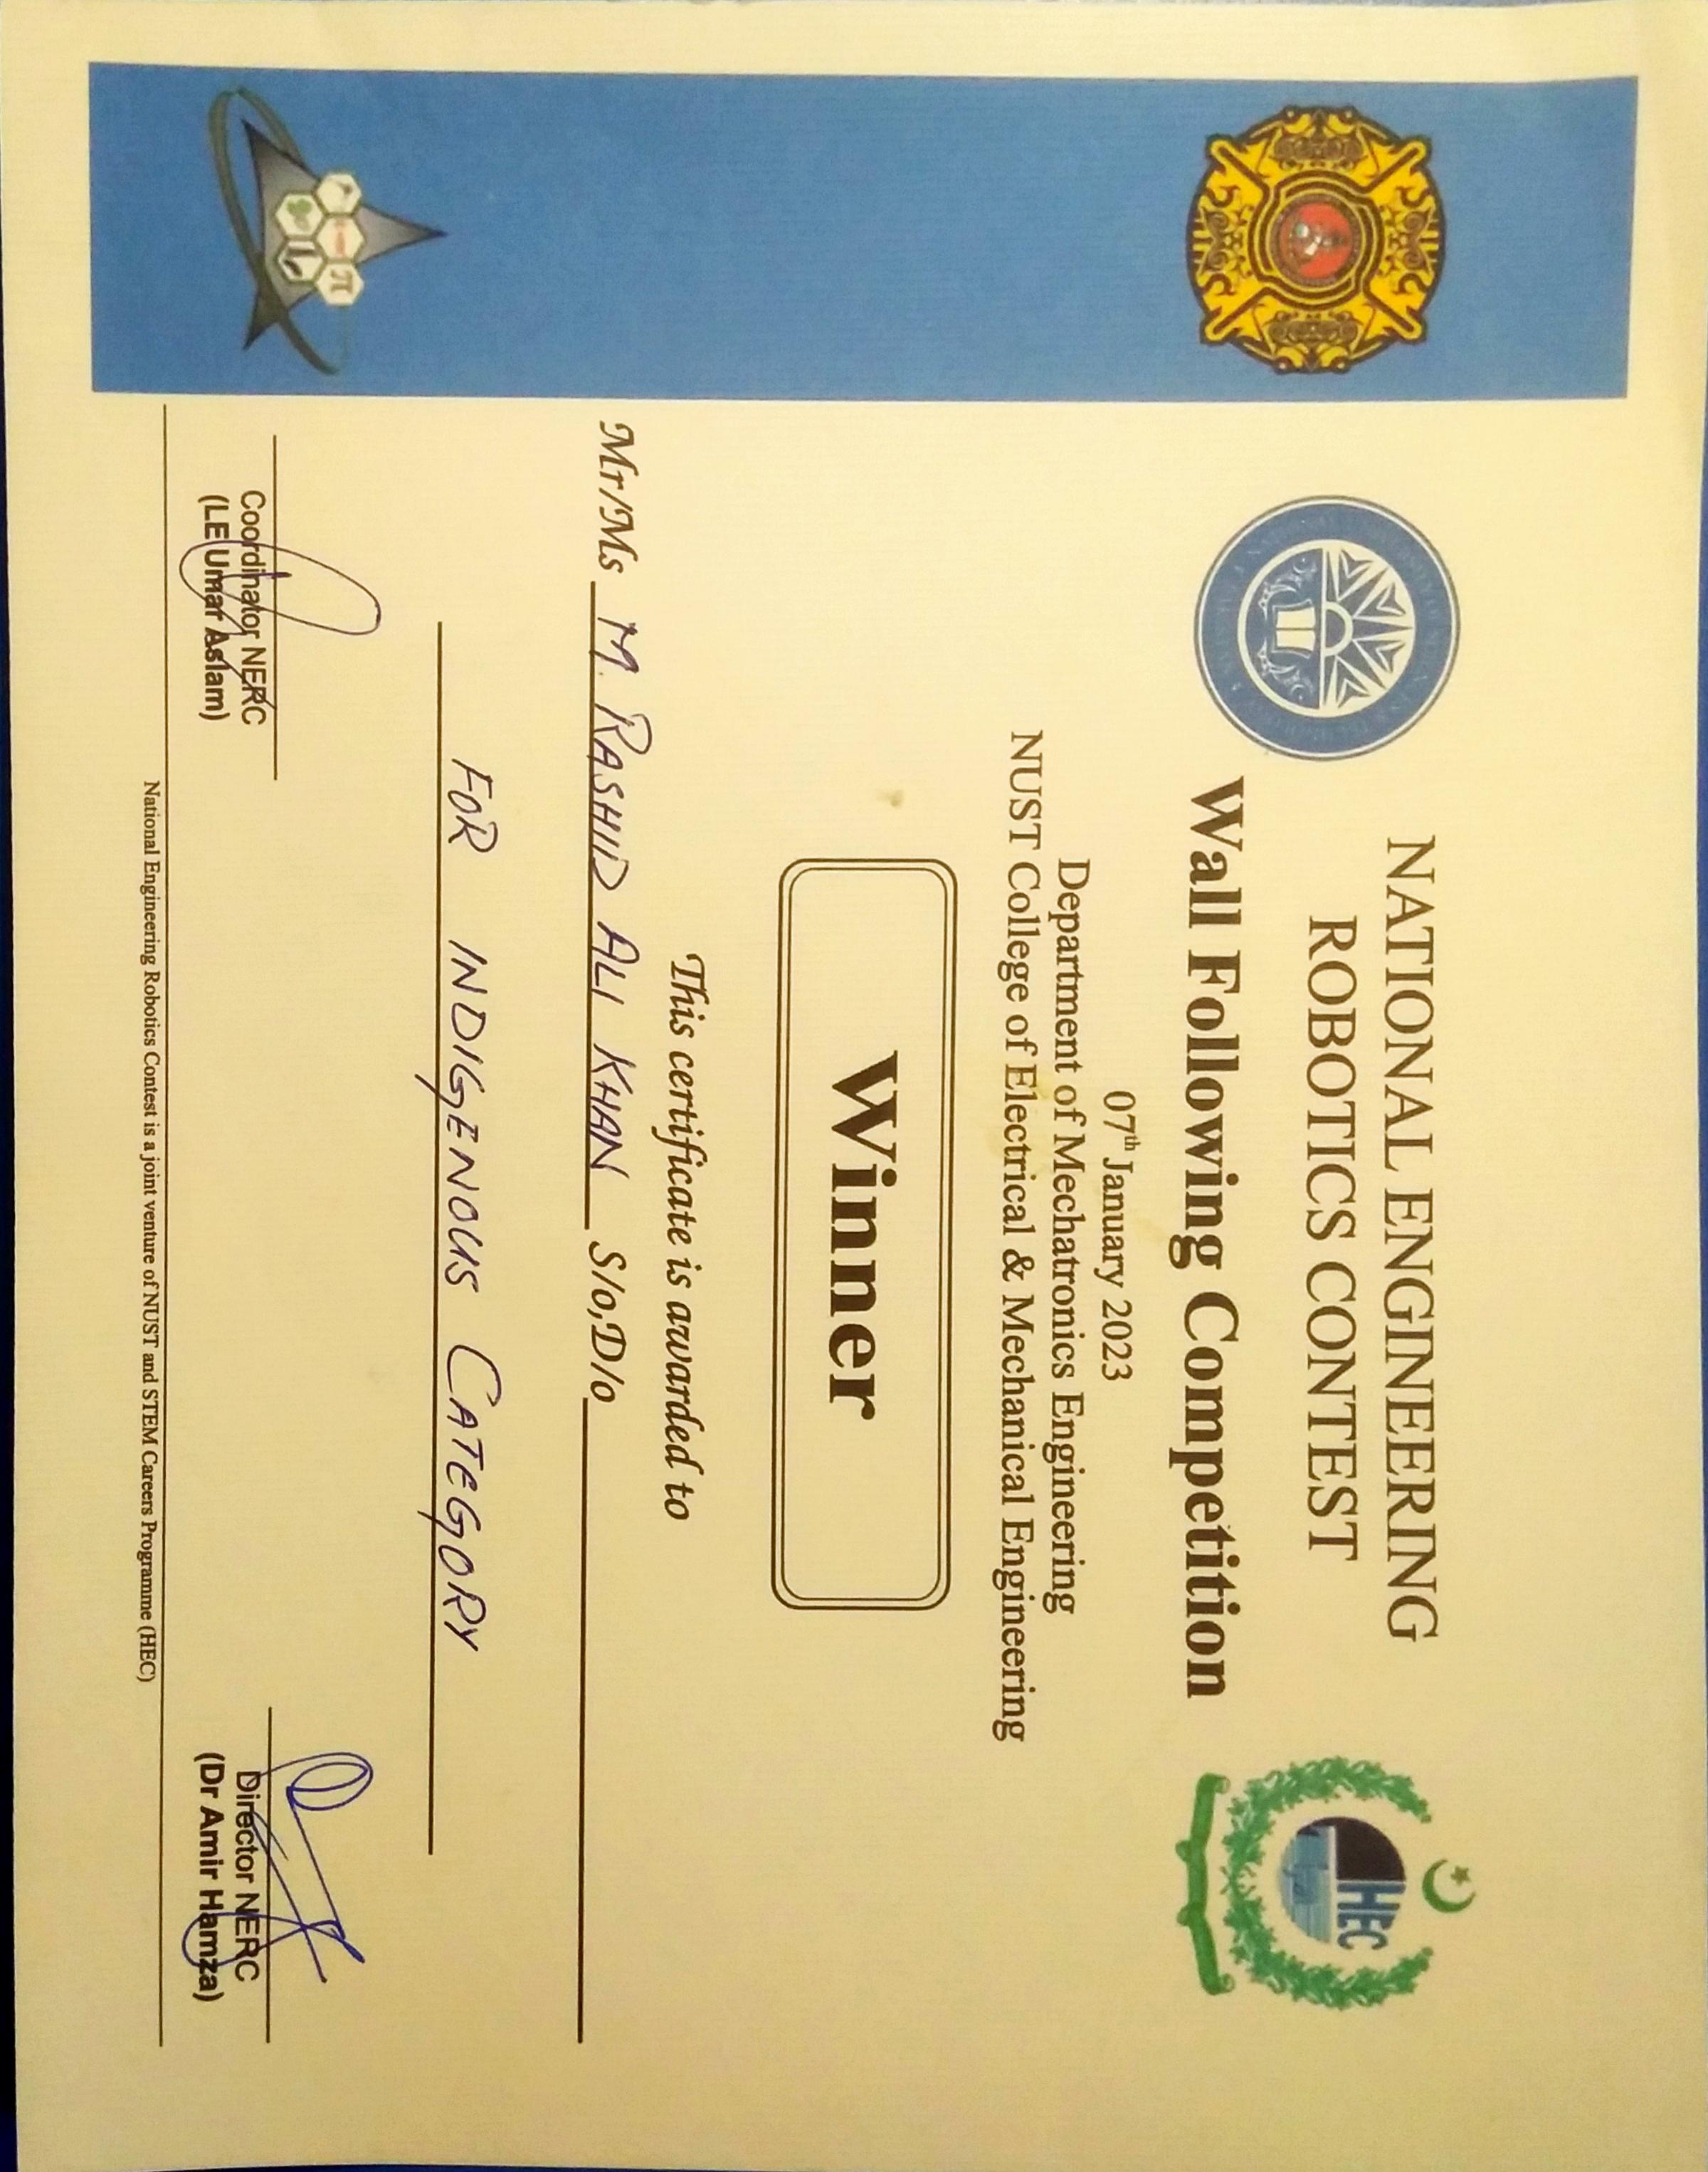 NATIONAL ENGINEERING
ROBOTICS CONTEST
HEC
Wall Following Competition
07th January 2023
Department of Mechatronics Engineering
NUST College of Electrical & Mechanical Engineering
Winner
This certificate is awarded to
Mr/Ms M. RASHID ALI KHAN S/o,D/o
FOR INDIGENOUS CATEGORY
π
Coordinator NERC
(LE Umar Aslam)
Director NERC
(Dr Amir Hamza)
National Engineering Robotics Contest is a joint venture of NUST and STEM Careers Programme (HEC)